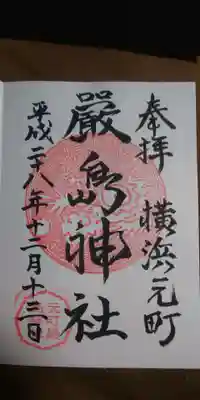 奉拝 横浜元町
厳島神社
平成二十八年十二月十三日